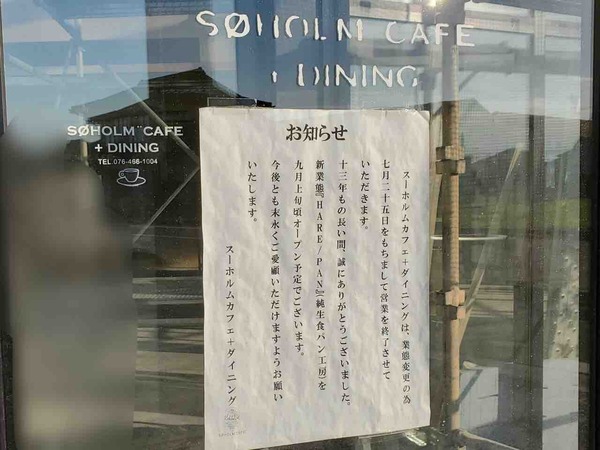 SØHOLM CAFE
+ DINING
SØHOLM CAFE
+ DINING
TEL 076-466-1004
お知らせ
スーホルムカフェ+ダイニングは、業態変更の為
七月二十五日をもちまして営業を終了させて
いただきます。
十三年もの長い間、誠にありがとうございました。
新業態『HARE/PAN』(純生食パン工房)を
九月上旬頃オープン予定でございます。
今後とも末永くご愛顧いただけますようお願い
いたします。
スーホルムカフェ+ダイニング